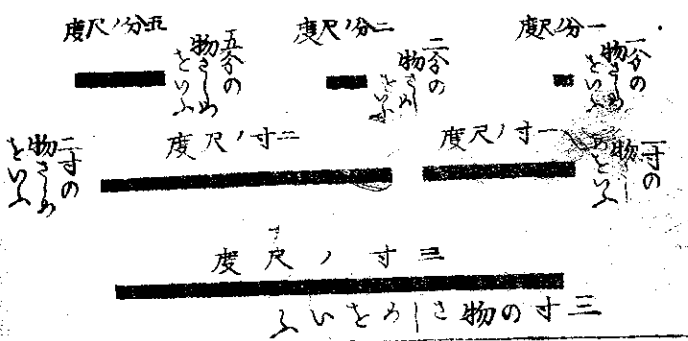 一分ノ尺度
一分の
物さしめ
をいふ
二分ノ尺度
二分の
物さしめ
をいふ
五分ノ尺度
五分の
物さしめ
をいふ
一寸ノ尺度
一寸の
物さし
めをいふ
二寸ノ尺度
二寸の
物さしめ
をいふ
三寸ノ尺度
三寸の物さしめをいふ